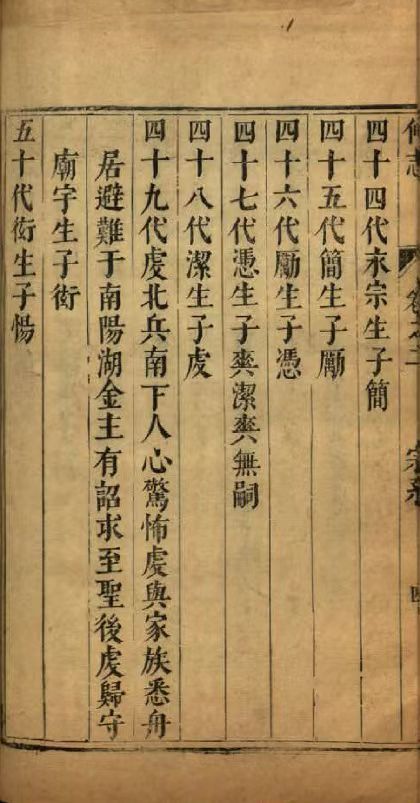 四十四代永宗生子簡
四十五代簡生子勵
四十六代勵生子憑
四十七代憑生子爽潔爽無嗣
四十八代潔生子虔
四十九代虔北兵南下人心驚怖虔與家族悉舟
居避難于南陽湖金主有詔求至聖後虔歸守
廟宇生子衎
五十代衎生子惕